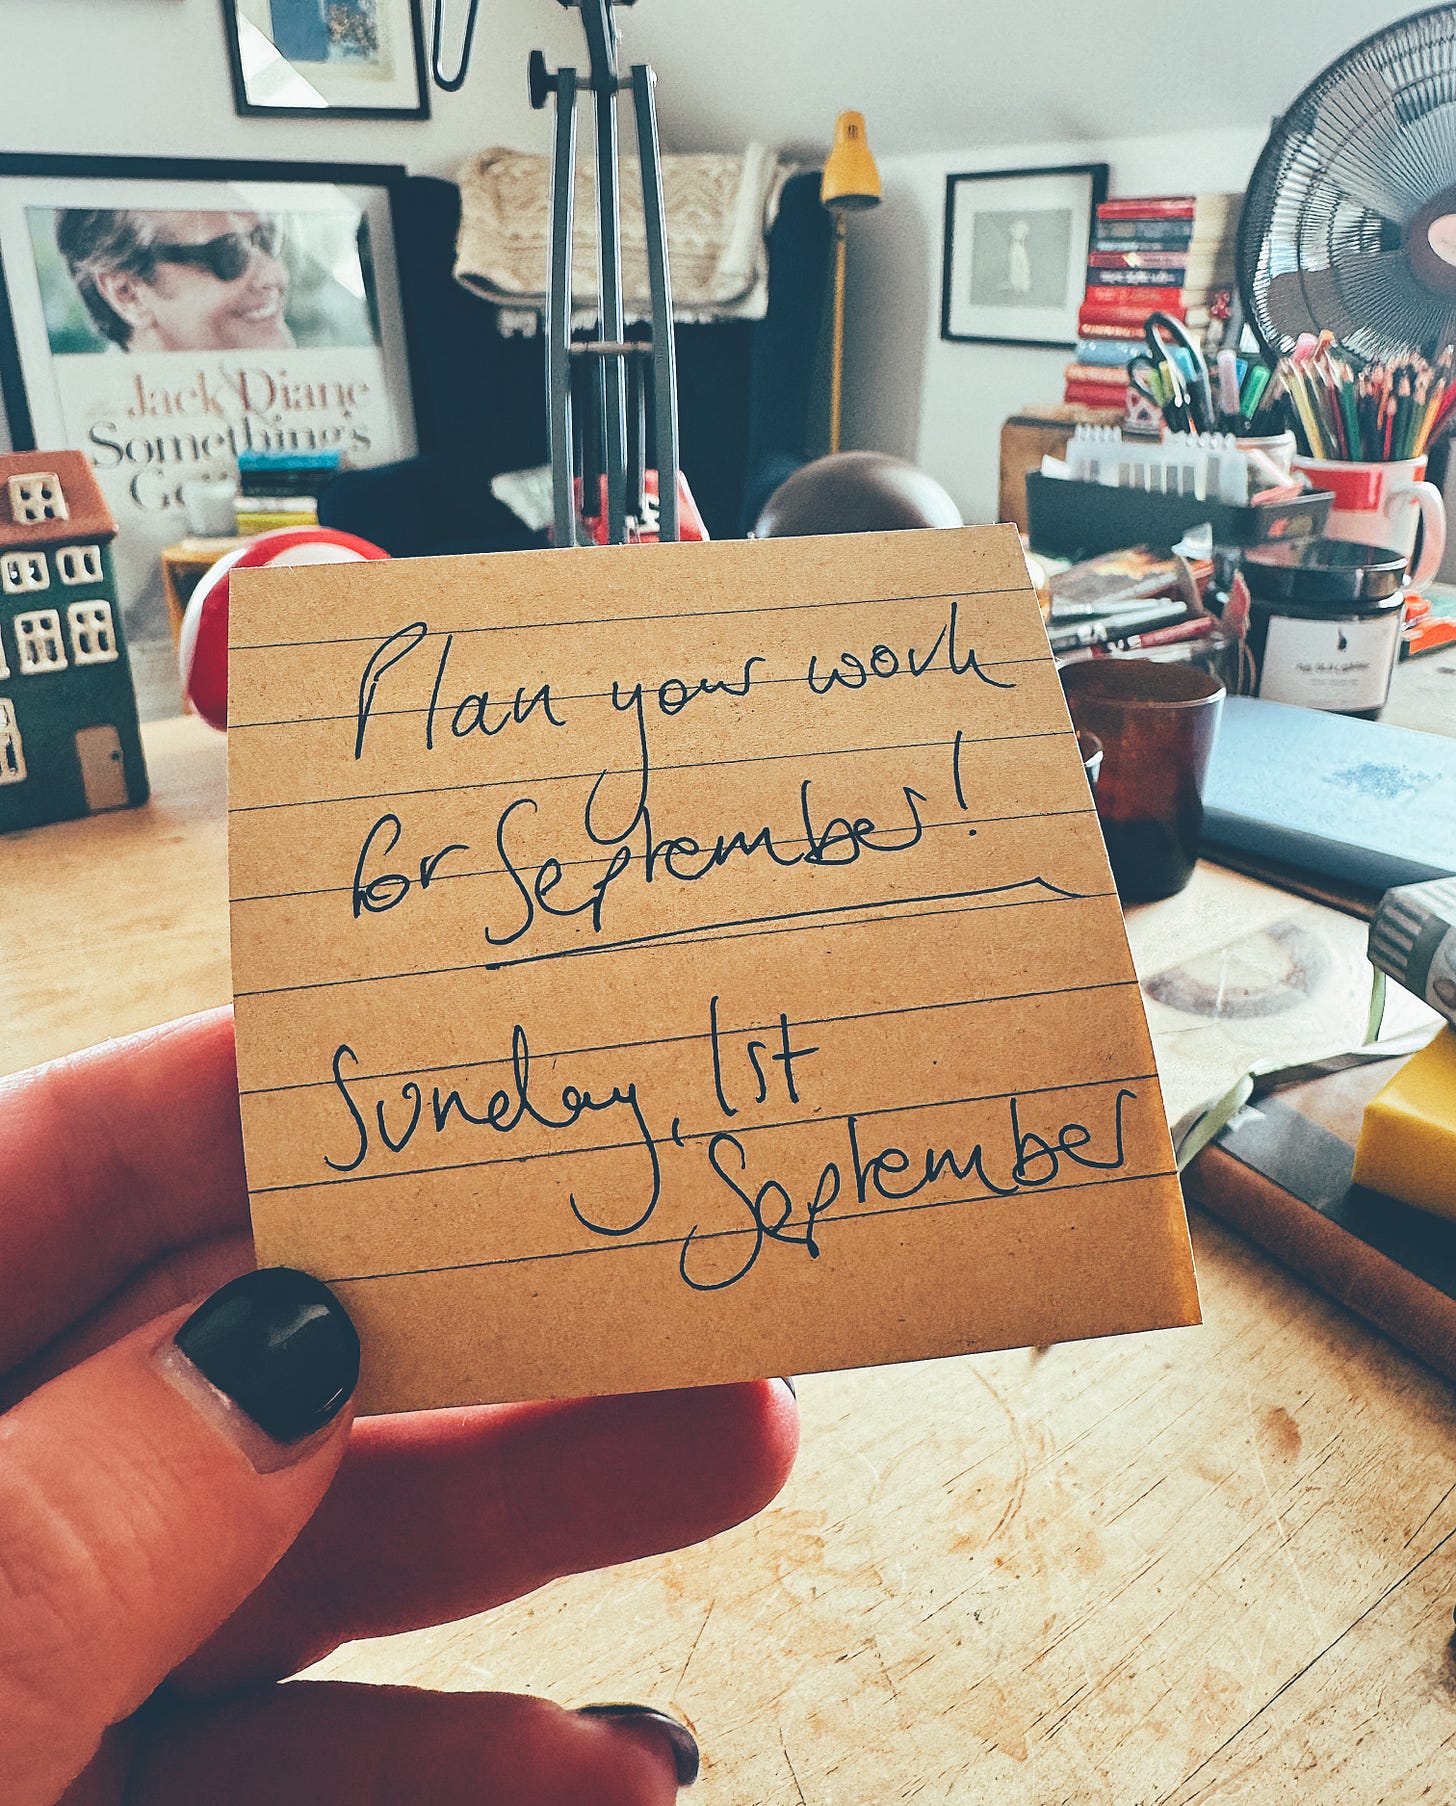 Jack Diane
Something's
Plan your work
for September!
Sunday, 1st
September